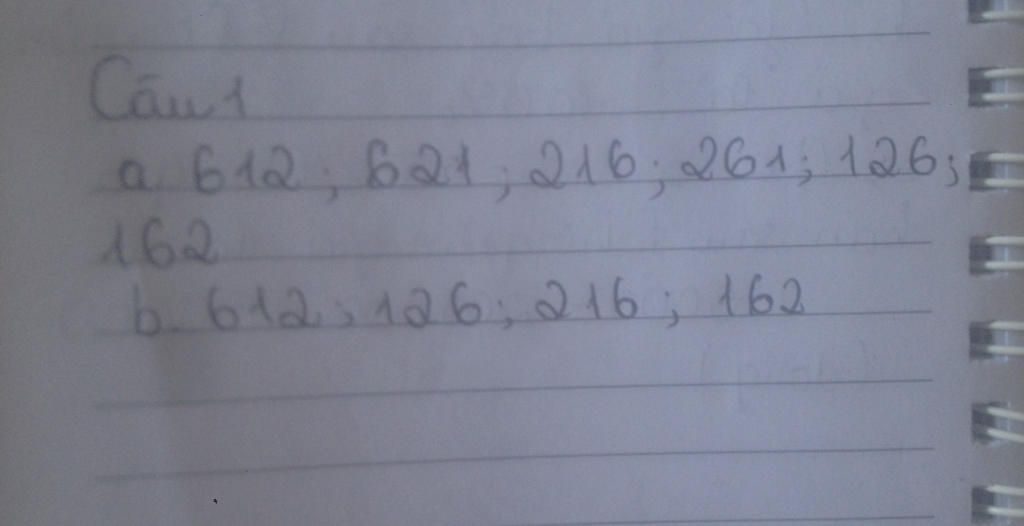 Câu 1
a. 612; 621; 216; 261; 126;
162
b. 612; 126; 216; 162